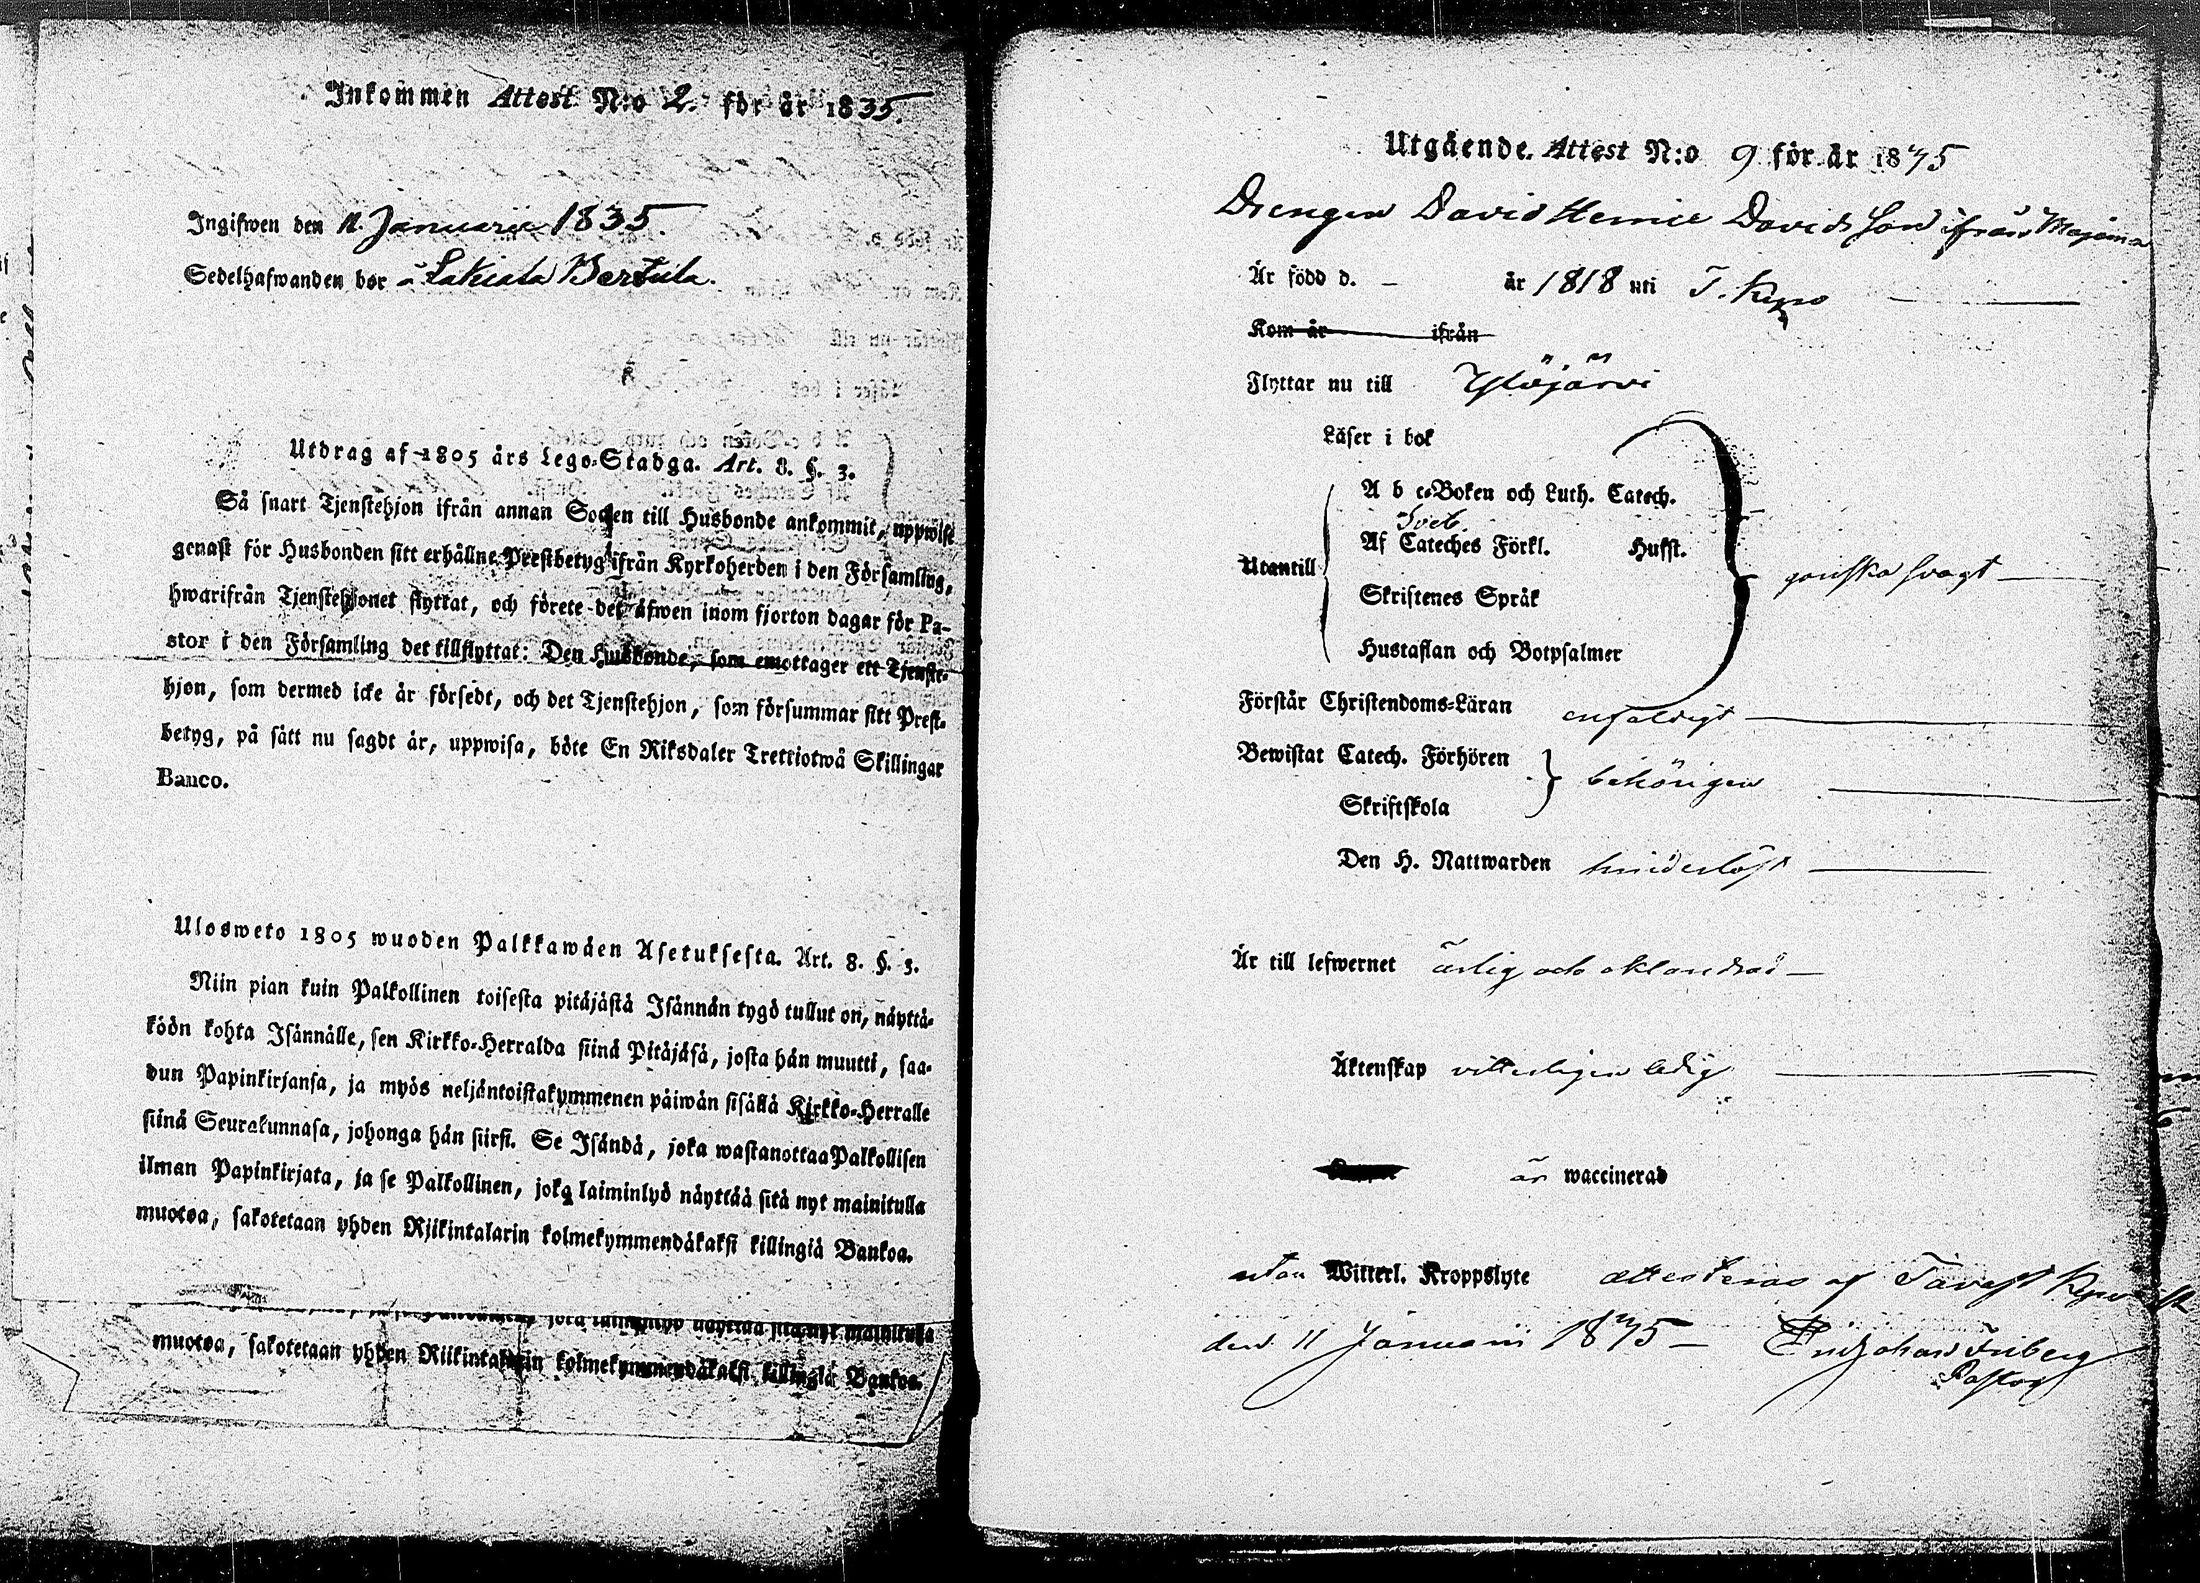 Inkommen Attest N:o 2. för år 1835.
Ingifwen den 12. Januarii 1835.
Sedelhafwanden bor å Lakiala Bertula.
Utdrag af 1805 års Lego-Stadga. Art. 8. §. 3.
Så snart Tjenstehjon ifrån annan Socken till Husbonde ankommit, uppwise
genast för Husbonden sitt erhållne Prestbetyg ifrån Kyrkoherden i den Församling,
hwarifrån Tjenstehjonet flyttat, och förete det äfwen inom fjorton dagar för Pa-
stor i den Församling det tillflyttat: Den Husbonde, som emottager ett Tjenste-
hjon, som dermed icke är försedt, och det Tjenstehjon, som försummar sitt Prest-
betyg, på sätt nu sagdt är, uppwisa, böte En Riksdaler Trettiotwå Skillingar
Banco.
Ulosweto 1805 wuoden Palkkawäen Asetuksesta. Art. 8. §. 3.
Niin pian kuin Palkollinen toisesta pitäjästä Isännän tygö tullut on, näyttä-
köön kohta Isännälle, sen Kirkko-Herralda siinä Pitäjäsä, josta hän muutti, saa-
dun Papinkirjansa, ja myös neljäntoistakymmenen päiwän sisällä Kirkko-Herralle
siinä Seurakunnasa, johonga hän siirsi. Se Isändä, joka wastanottaa Palkollisen
ilman Papinkirjata, ja se Palkollinen, joka laiminlyö näyttää sitä nyt mainitulla
muotoa, sakotetaan yhden Riikintalarin kolmekymmendäkaksi killingiä Bankoa.
joka laiminlyö näyttää sitä nyt mainitulla
muotoa, sakotetaan yhden Riikintalarin kolmekymmendäkaksi killingiä Bankoa.
Utgående Attest N:o 9 för år 1835
Drengen David Henric Davidsson ifrån
Är född d. – år 1818 uti T. Kyro
Kom år ifrån
Flyttar nu till Ylöjärvi
Läser i bok
A b c-Boken och Luth. Catech.
Sveb.
Utantill Af Cateches Förkl. Husst. ganska svagt
Skriftenes Språk
Hustaflan och Botpsalmer
Förstår Christendoms-Läran enfaldigt
Bewistat Catech. Förhören behörigen
Skriftskola
Den H. Nattwarden hinderlöst
Är till lefwernet ärlig och oklandrad –
Äktenskap vitterligen ledig
är waccinerad
utan Witterl. Kroppslyte attesteras af Tavast Kyro
den 11 Januarii 1835 – Johan Friberg
Pastor